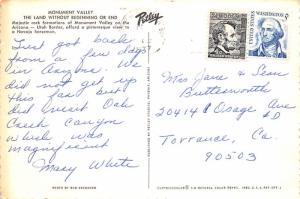 MONUMENT VALLEY
THE LAND WITHOUT BEGINNING OR END
Majestic rock formations of Monument Valley on the
Arizona — Utah Border, afford a picturesque view to
a Navajo horseman.
Petley
Just got back
from a few days
in Arizona. We
did not get up
this far but
did visit Oak
Creek Canyon
which was
magnificent
Mary White
PHOTO BY BOB BRADSHAW
UNITED STATES
5¢
Mrs Jane & Sean
Butterworth
20414 Osage Ave
Torrance, Ca.
90503